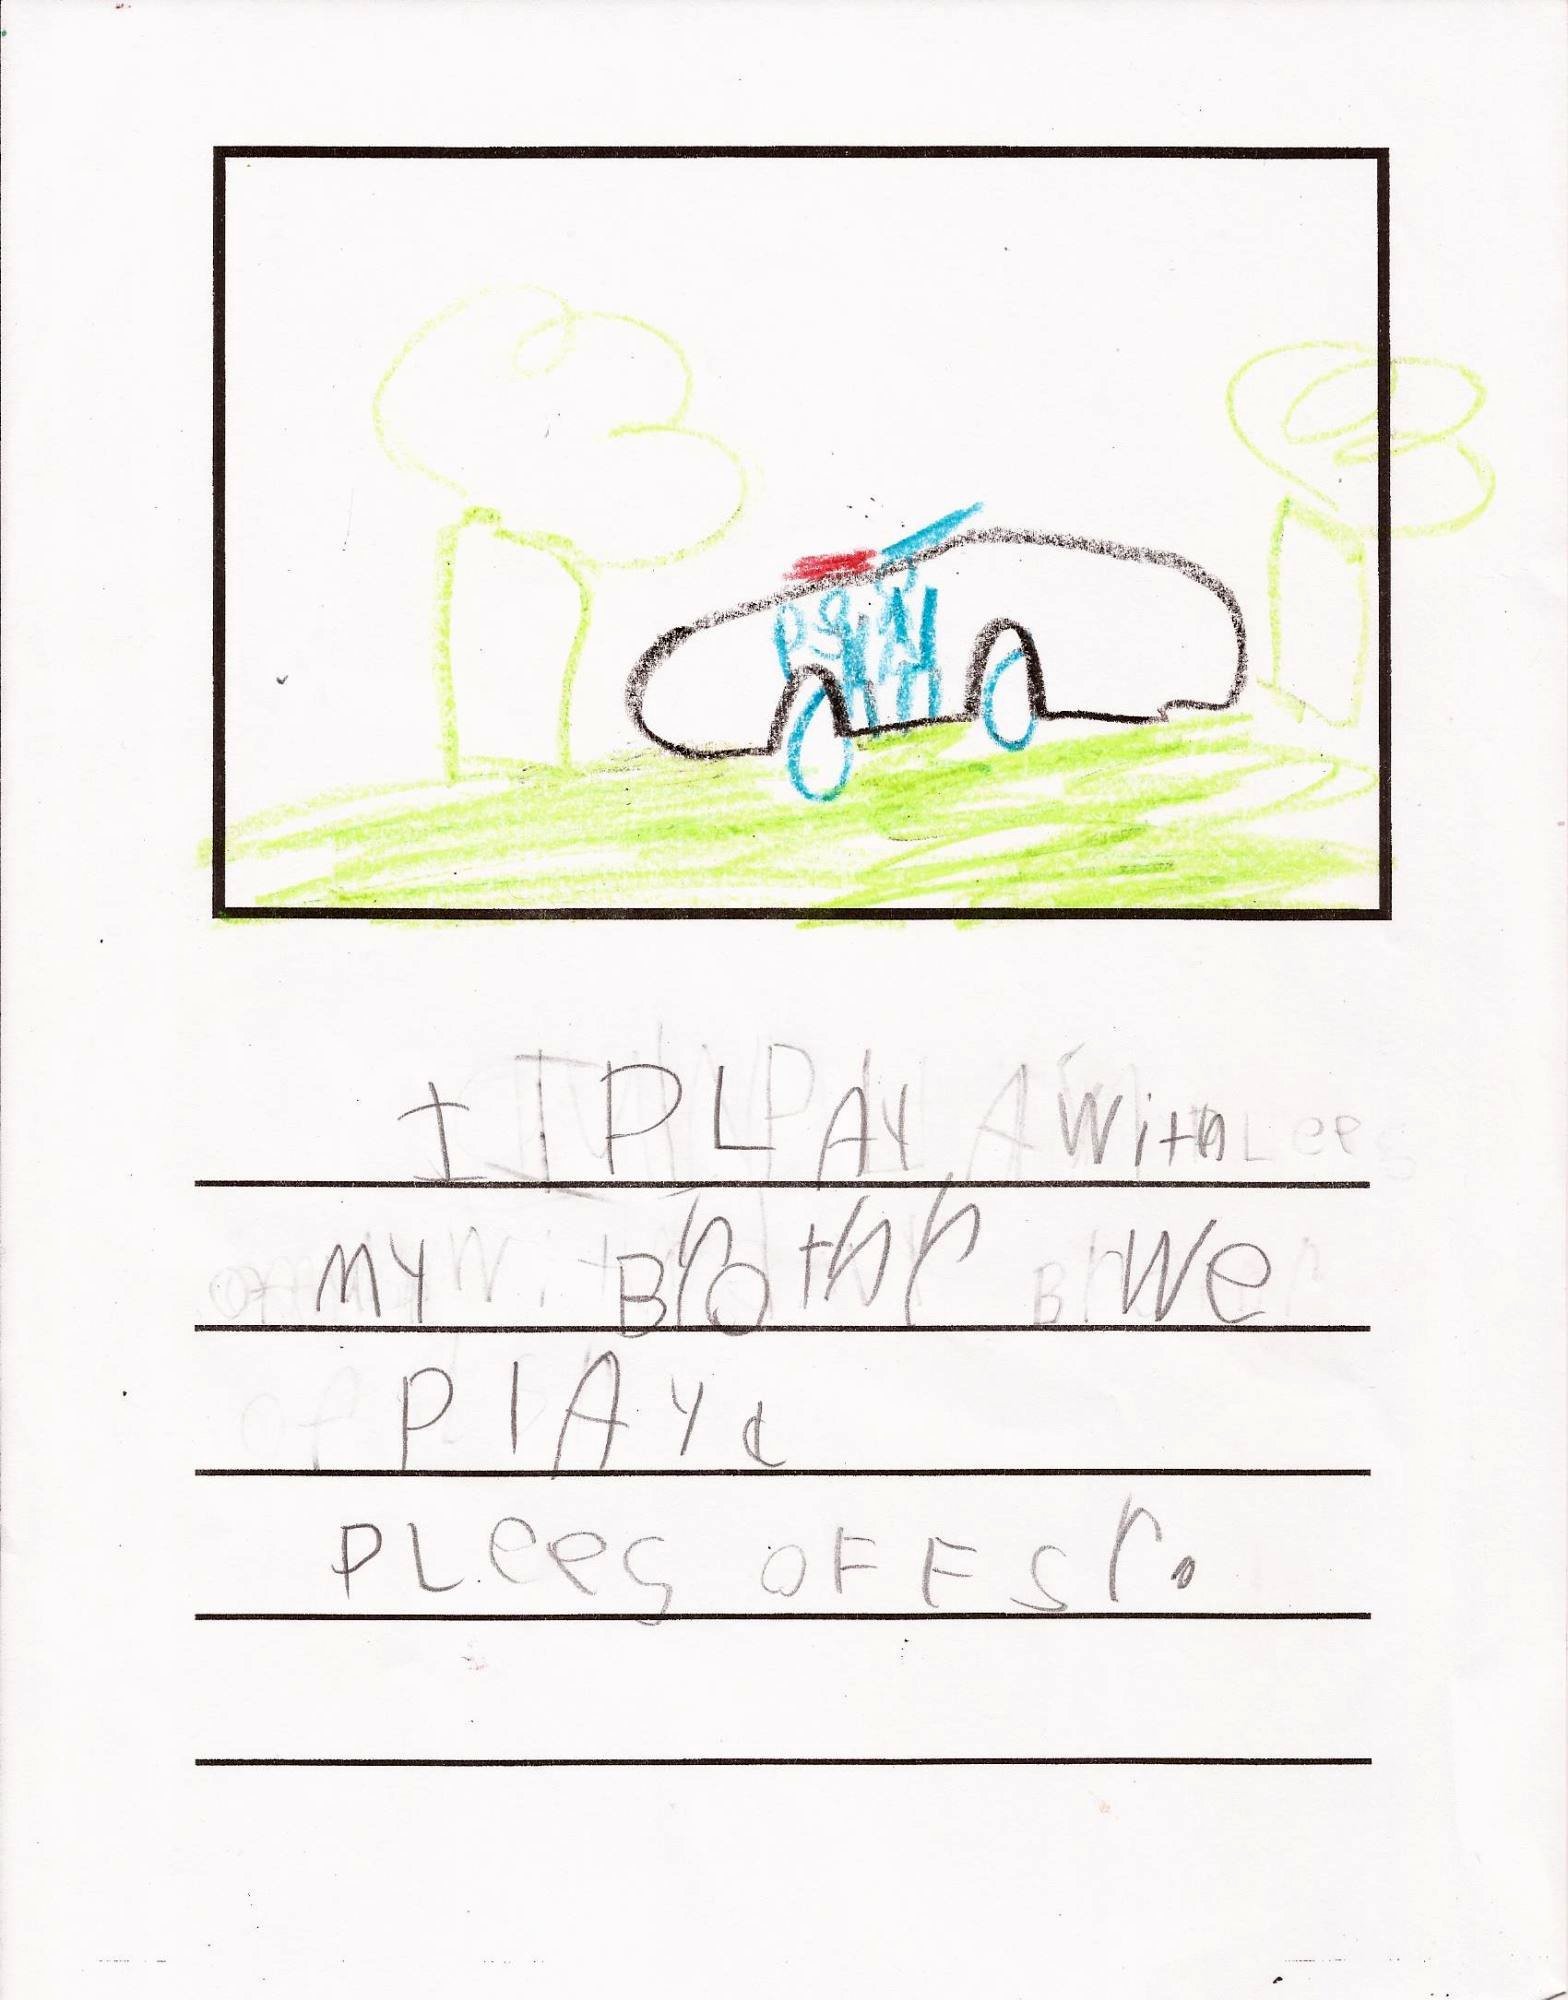 I PLAY with
MY Brothr We
PlAYd
PLees oFFsr.